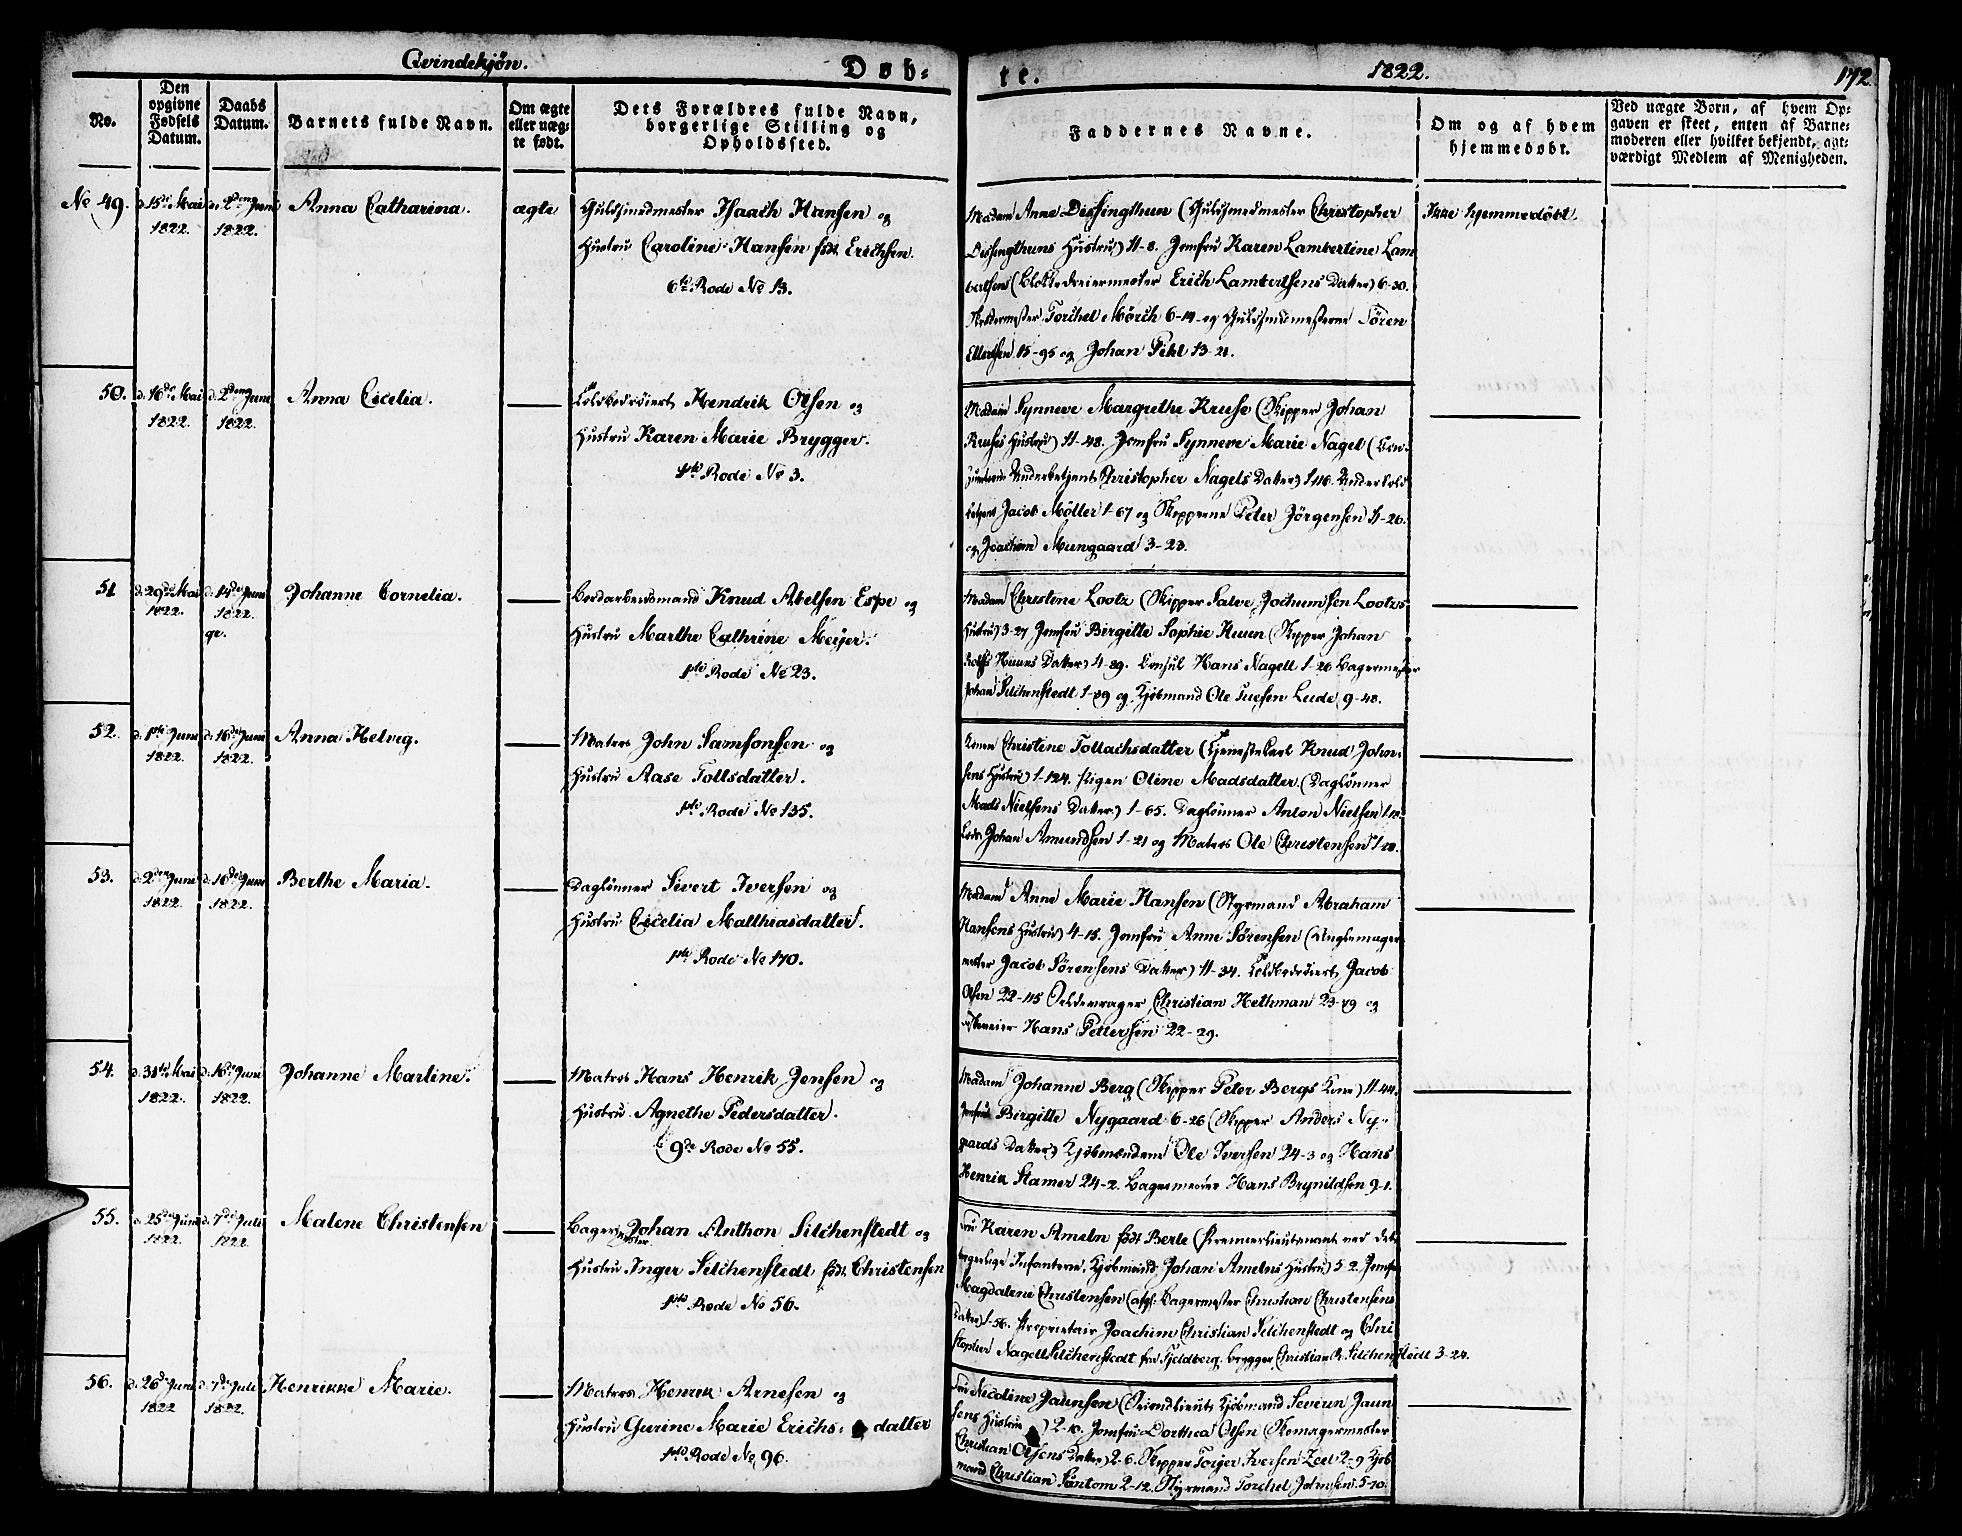 Qvindekjøn.
Døb-
te.
1822.
172
No.
Den opgivne Fødsels Datum.
Daabs Datum.
Barnets fulde Navn.
Om ægte eller uægte født.
Dets Forældres fulde Navn, borgerlige Stilling og Opholdssted.
Faddernes Navne.
Om og af hvem hjemmedøbt.
Ved uægte Børn, af hvem Opgaven er skeet, enten af Barnemoderen eller hvilket bekjendt, agtværdigt Medlem af Menigheden.
No 49.
d. 15de Mai 1822.
d. 2den Juni 1822.
Anna Catharina.
ægte
Guldsmedmester Isaach Hansen og
Hustru Caroline Hansen født Erichsen.
6te Rode No 13.
Madam Anne Dissingthun (Guldsmedmester Christopher
Dissingthuns Hustru) 11-8. Jomfru Karen Lambertine Lam
bertsens (Blokkedreiermester Erich Lambertsens Datter) 6-30.
Torchel Mörch 6-14 og Guldsmedmesterne Sören
Ellertsen 15-95 og Johan Pihl 13-21.
Ikke hjemmedöbt.
50.
d. 16de Mai 1822.
d. 2den Juni 1822.
Anna Cecelia.
Hendrik Olsen og
Hustru Karen Marie Brygger.
1ste Rode No 3.
Madam Synneve Margrethe Kruse (Skipper Johan
Kruses Hustru) 11-48. Jomfru Synneve Marie Nagel (
Underbetjent Christopher Nagels Datter) 1-116.
Jacob Möller 1-67 og Skipperne Peter Jörgensen 11-26.
og Joachim Mungaard 3-23.
51
d. 29de Mai 1822.
d. 14de Juni 1822.
Johanne Cornelia.
Knud Abelsen Espe og
Hustru Marthe Cathrine Meyer.
1ste Rode No 23.
Madam Christene Lootz (Skipper Salve Jochumsen Lootzs
Hustru) 3-27 Jomfru Birgitte Sophie Huun (Skipper Johan
Rolfs Huuns Datter) 4-89. Consul Hans Nagell 1-26 Bagermester
Johan Silchenstedt 1-89 og Kjöbmand Ole Tuesen Lude 9-48.
52.
d. 1ste Juni 1822.
d. 16de Juni 1822.
Anna Helvig.
Matros John Samsonsen og
Hustru Aase Tollsdatter.
1ste Rode No 135.
Konen Christine Tollachsdatter (Knud John-
sens Hustru) 1-124. Pigen Oline Madsdatter. (Daglönner
Mads Nielsens Datter) 1-65. Daglönner Anton Nielsen
Johan Amundsen 1-21 og Matros Ole Christensen
53.
d. 2den Juni 1822.
d. 16de Juni 1822.
Berthe Maria.
Daglönner Sivert Iversen og
Hustru Cecelia Matthiasdatter.
1ste Rode No 170.
Madam Anne Marie Hansen (Styrmand Abraham
Hansens Hustru) 4-15. Jomfru Anne Sörensen (
mester Jacob Sörensens Datter) 11-34. Jacob
Olsen 22-45 Christian Hethman 23-89 og
Hans Pettersen 22-29.
54.
d. 31te Mai 1822.
d. 16de Juni 1822.
Johanne Martine.
Matros Hans Henrik Jensen og
Hustru Agnethe Pedersdatter.
9de Rode No 55.
Madam Johanne Berg (Skipper Peter Bergs Kone) 11-44.
Jomfru Birgitte Nygaard 6-26 (Skipper Anders Ny-
gaards Datter) Kjöbmændene Ole Iversen 24-3 og Hans
Henrik Stamer 24-2. Hans Brynildsen 9-1.
55.
d. 25de Juni 1822.
d. 7de Juli 1822.
Malene Christensen
Bagermester Johan Anthon Silchenstedt og
Hustru Inger Silchenstedt født Christensen
1ste Rode No 56.
Fru Karen Ameln født Berle (Premierlieutenant ved det
borgerlige Infanterie, Kjöbmand Johan Amelns Hustru) 5-2. Jomfru
Magdalene Christensen (afg: Bagermester Christian Christensens
Datter) 1-56. Proprietair Joachim Christian Silchenstedt og Chri
stopher Nagell Silchenstedt fra Fjeldberg. Brygger Christian R. Silchenstedt 3-24.
56.
d. 26de Juni 1822
d. 7de Juli 1822.
Henrikke Marie.
Matros Henrik Arnesen og
Hustru Gurine Marie Erichs: datter
1ste Rode No 96.
Fru Nicoline Jaunsen (Kjöbmand Severin Jaun
sens Hustru) 2-10. Jomfru Dorthea Olsen (Skomagermester
Christian Olsens Datter) 2-6. Skipper Torjer Iversen Zeel 2-9 Kjöb
mand Christian Sontom 2-12. Styrmand Torchel Johnsen 5-70.